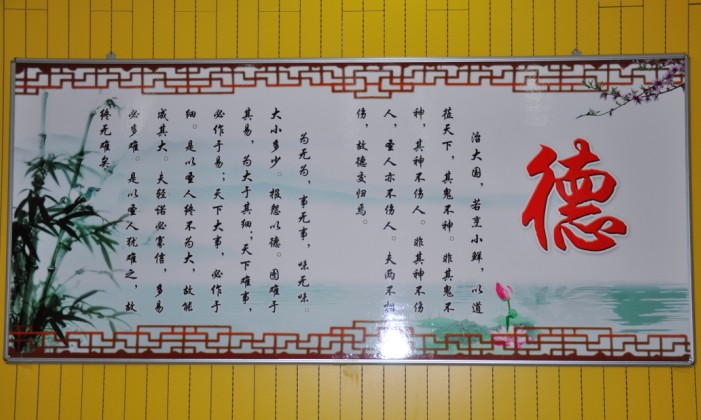 德
治大国，若烹小鲜，以道
莅天下，其鬼不神。非其鬼不
神，其神不伤人。非其神不伤
人，圣人亦不伤人。夫两不相
伤，故德交归焉。
为无为，事无事，味无味。
大小多少。报怨以德。图难于
其易，为大于其细；天下难事，
必作于易；天下大事，必作于
细。是以圣人终不为大，故能
成其大。夫轻诺必寡信，多易
必多难。是以圣人犹难之，故
终无难矣。